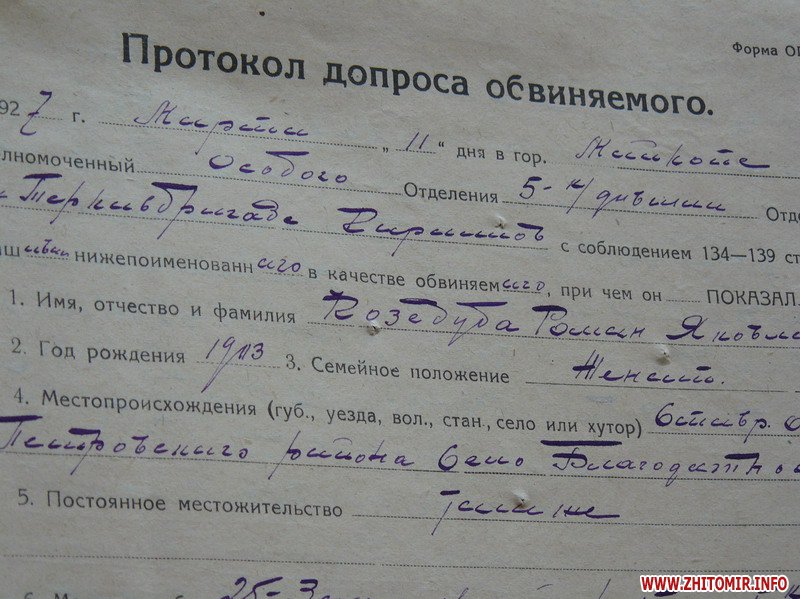 Форма ОГ
Протокол допроса обвиняемого.
927 г. Марта „11“ дня в гор.
лномоченный Особого Отделения 5-й дивизии Отде
Теркавбригаде с соблюдением 134—139 ст
нижепоименованного в качестве обвиняемого, при чем он ПОКАЗАЛ
1. Имя, отчество и фамилия Козедуба Роман Яковле
2. Год рождения 1903 3. Семейное положение Женат.
4. Местопроисхождения (губ., уезда, вол., стан., село или хутор) Ставр. о
Петровского района Село Благодатно
5. Постоянное местожительство там же
WWW.ZHITOMIR.INFO